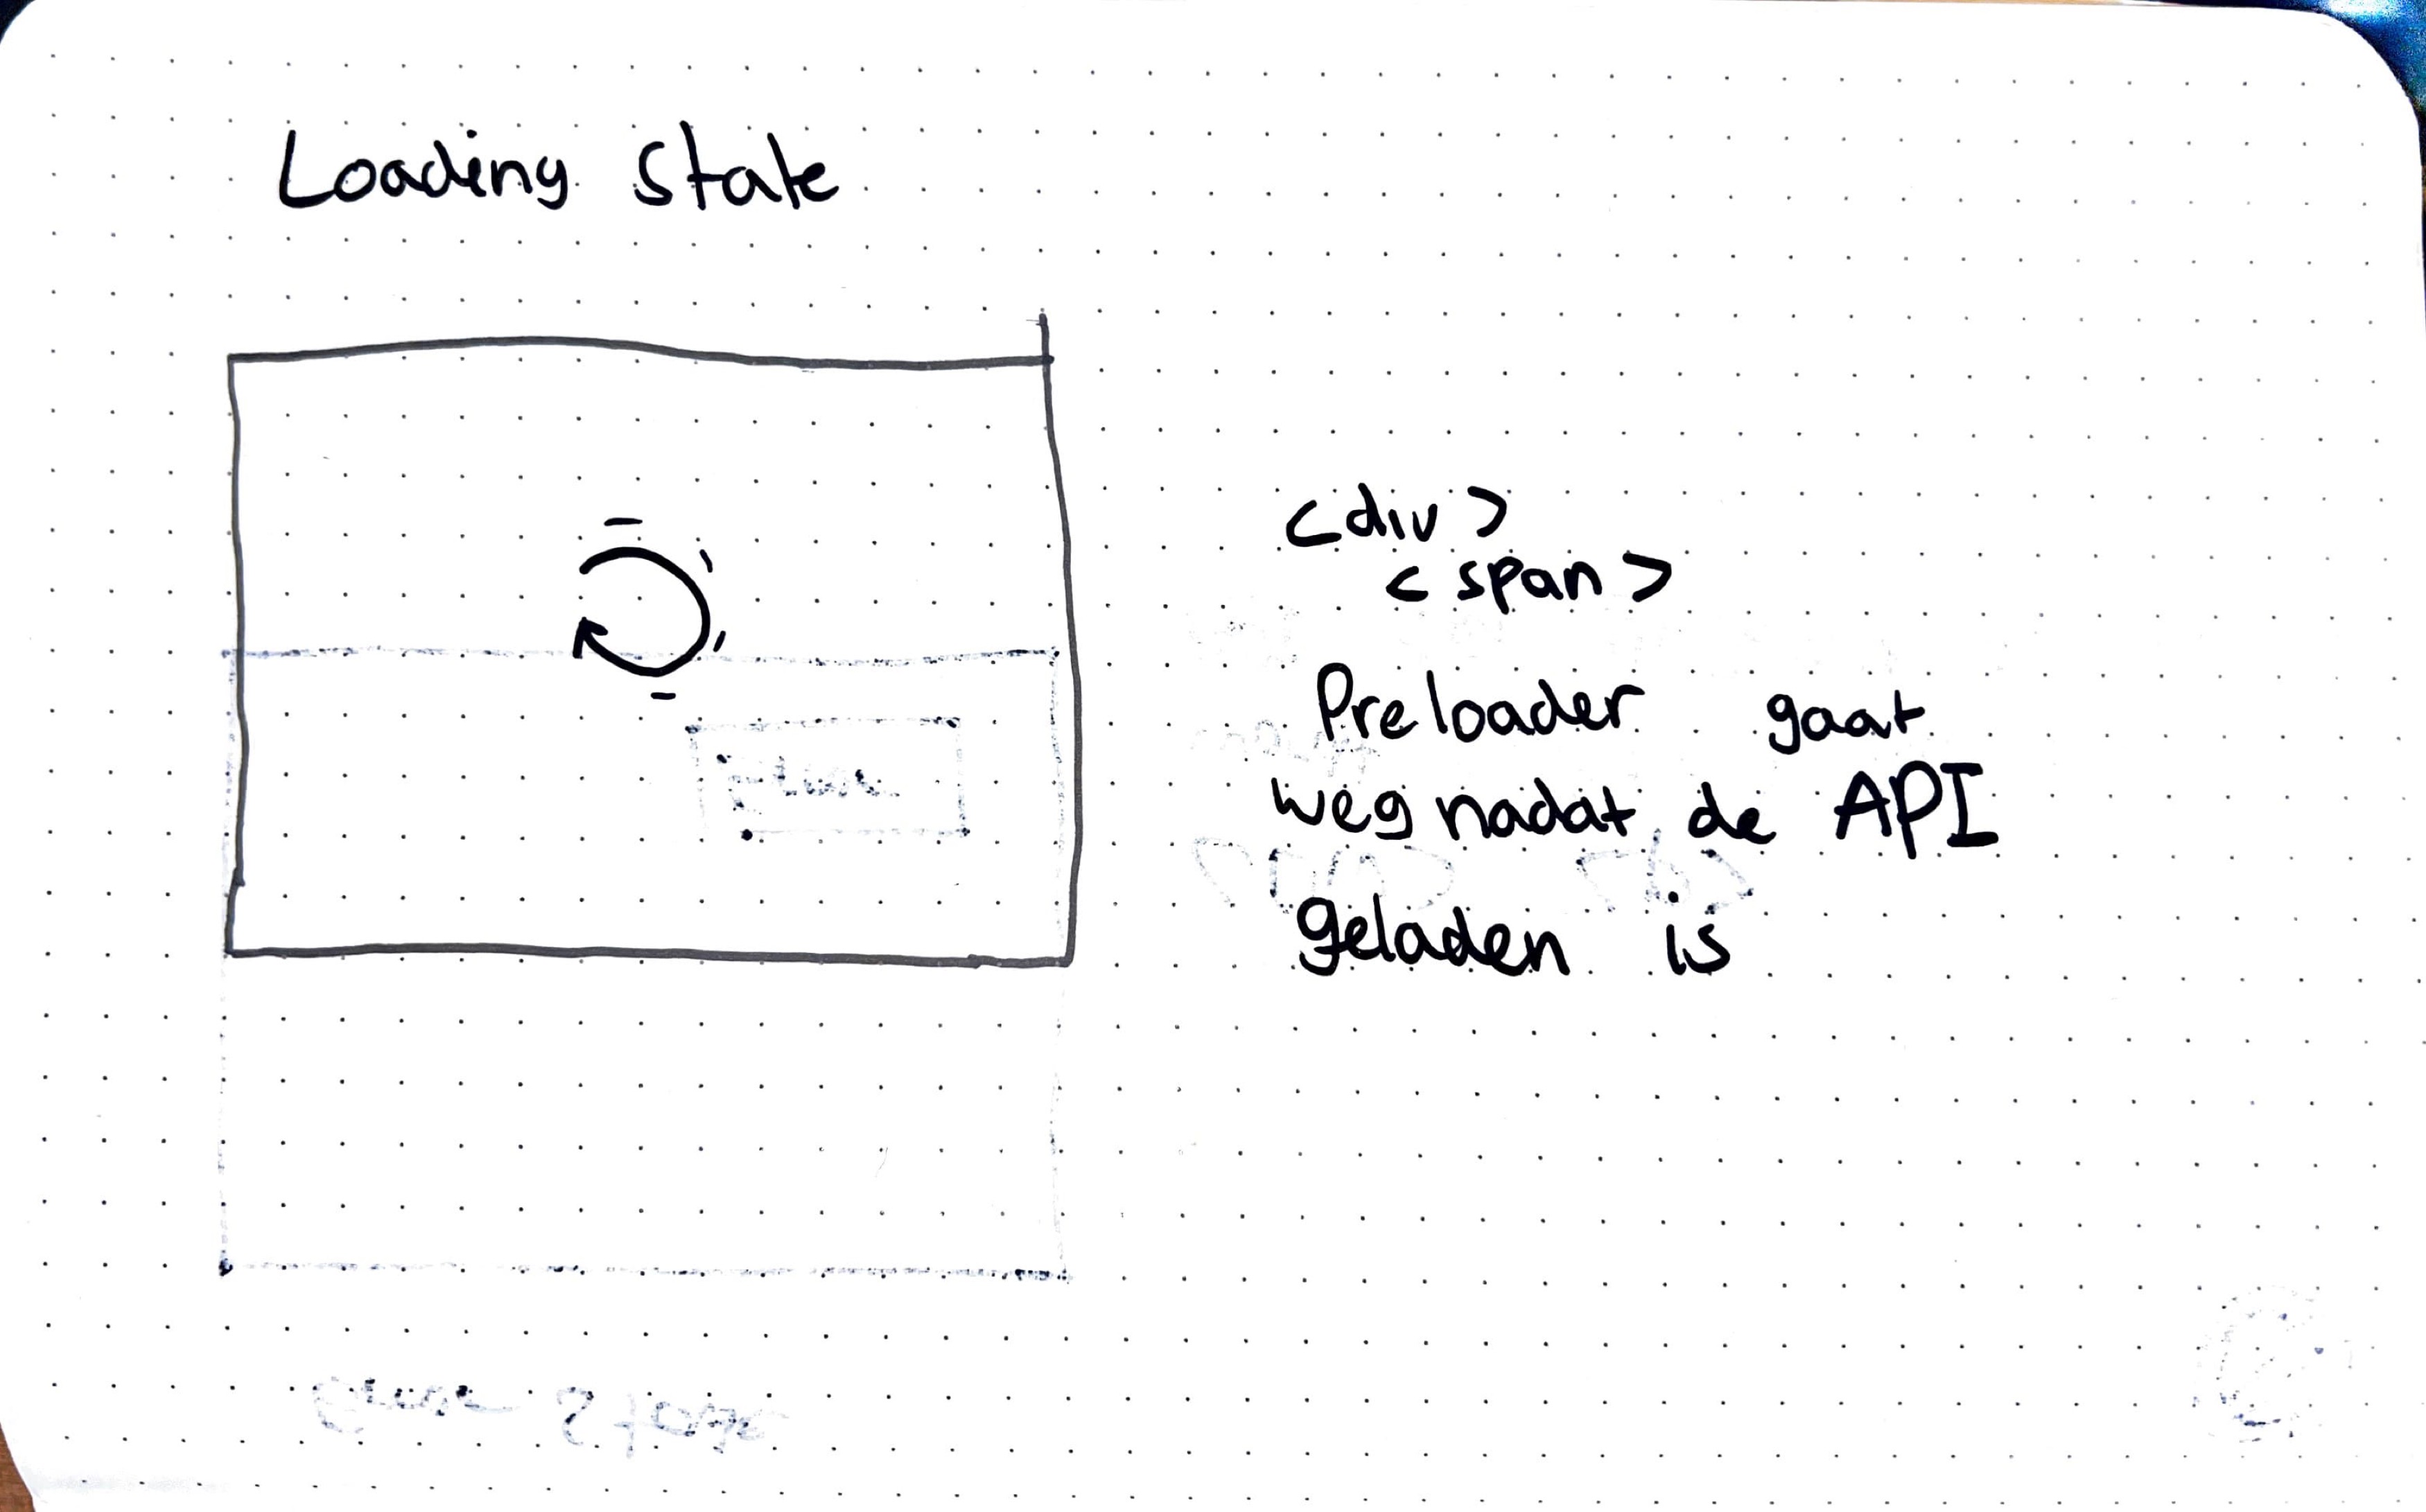 Loading state
<div>
<span>
Preloader gaat
weg nadat de API
geladen is